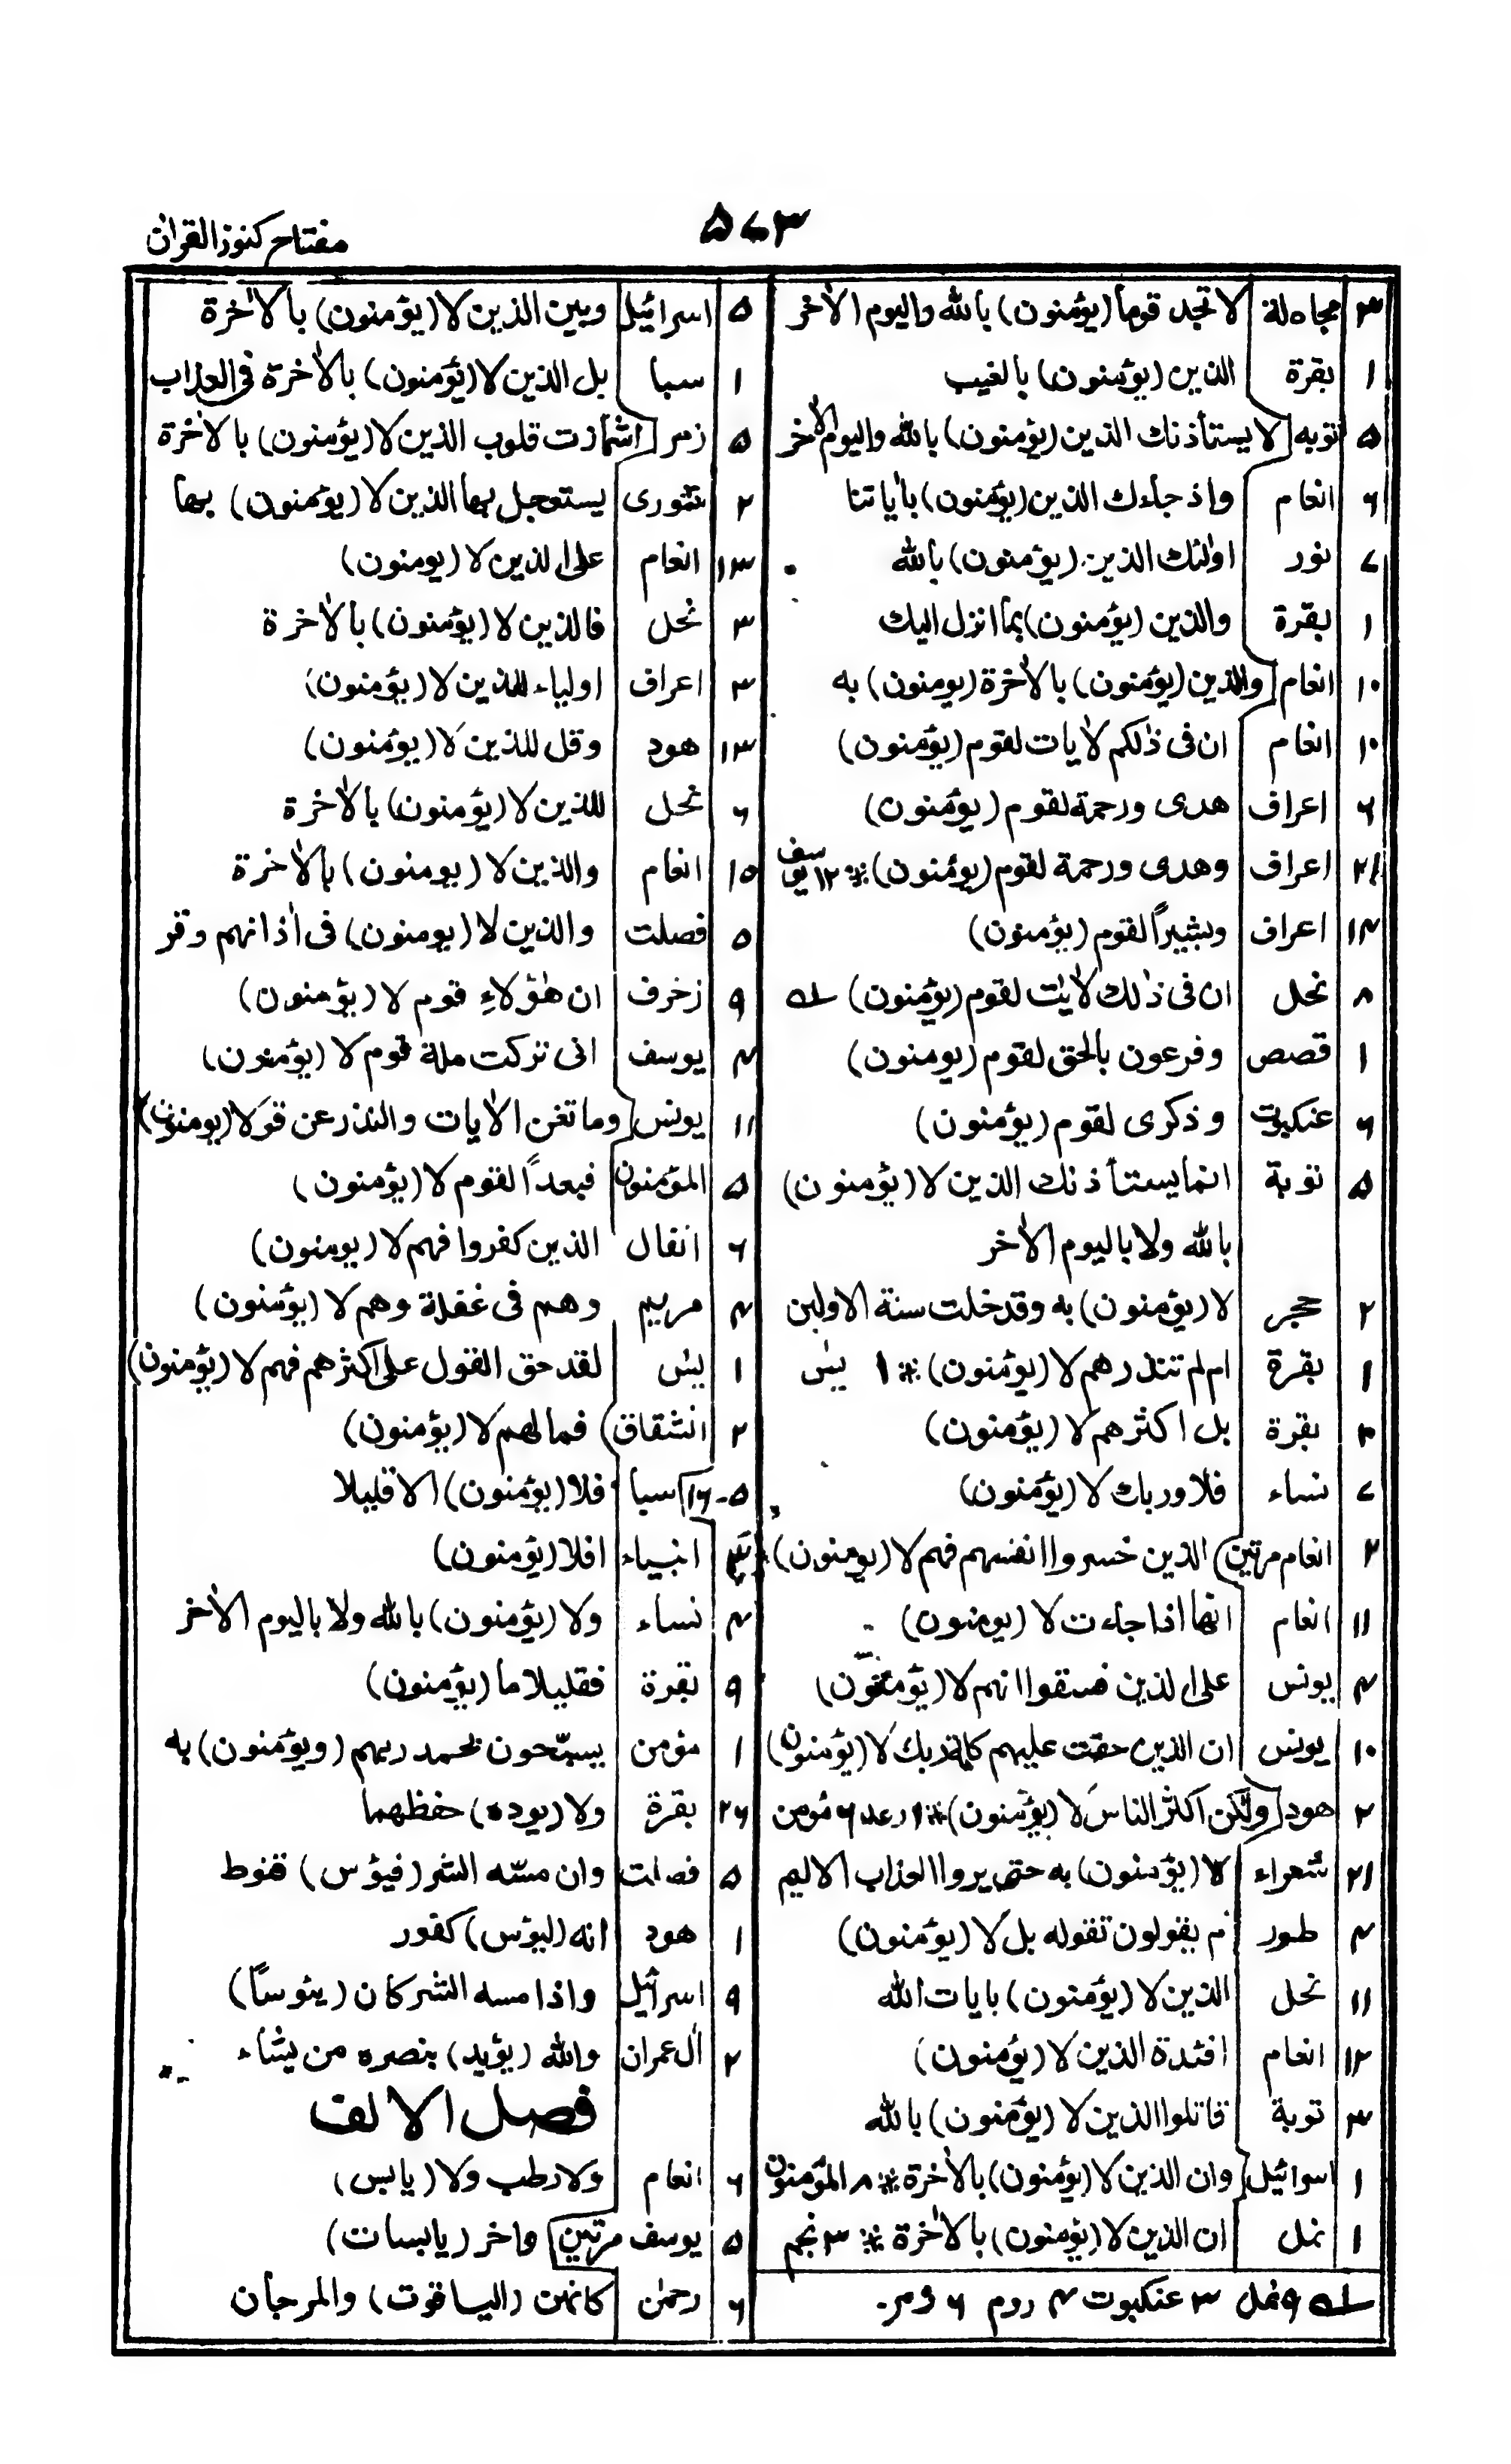 مفتاح كنوز القرآن
۵۷۳
۳ مجادلة لا تجد قوما (يؤمنون) بالله واليوم الاٰخر
۱ بقرة الذين (يؤمنون) بالغيب
۵ توبه لا يستأذنك الذين (يؤمنون) بالله واليوم الاٰخر
۶ انعام واذ جاءك الذين (يؤمنون) بأياتنا
۷ نور اولٰئك الذين (يؤمنون) بالله
۱ بقرة والذين (يؤمنون) بما انزل اليك
۱۰ انعام والذين (يؤمنون) بالاٰخرة (يومنون) به
۱۰ انعام ان فى ذٰلكم لاٰيات لقوم (يؤمنون)
۶ اعراف هدى ورحمة لقوم (يؤمنون)
۲۴ اعراف وهدى ورحمة لقوم (يؤمنون) ※ ۱۲ يوسف
۱۴ اعراف وبشيراً لقوم (يؤمنون)
۸ نحل ان فى ذٰلك لاٰيٰت لقوم (يؤمنون) ـلـه
۱ قصص وفرعون بالحق لقوم (يومنون)
۶ عنكبوت وذكرى لقوم (يؤمنون)
۵ توبة انما يستأذنك الذين لا (يؤمنون)
بالله ولا باليوم الاٰخر
۲ حجر لا (يؤمنون) به وقد خلت سنة الاولين
۱ بقرة ام لم تنذرهم لا (يؤمنون) ※ ۱ يٰس
۳ بقرة بل اكثرهم لا (يؤمنون)
۷ نساء فلا وربك لا (يؤمنون)
۲ انعام مرتين الذين خسروا انفسهم فهم لا (يومنون)
۱۱ انعام انها اذا جاءت لا (يومنون)
۴ يونس على الذين فسقوا انهم لا (يؤمنون)
۱۰ يونس ان الذين حقت عليهم كلمة ربك لا (يؤمنون)
۲ هود ولٰكن اكثر الناس لا (يؤمنون) ※ ۱ رعد ۶ مؤمن
۲۱ شعراء لا (يؤمنون) به حتى يروا العذاب الاليم
۴ طور ام يقولون تقوله بل لا (يؤمنون)
۱۱ نحل الذين لا (يؤمنون) بايات الله
۱۲ انعام افئدة الذين لا (يؤمنون)
۳ توبة قاتلوا الذين لا (يؤمنون) بالله
۱ اسرائيل وان الذين لا (يؤمنون) بالاٰخرة ※ ۸ المؤمنون
۱ نمل ان الذين لا (يؤمنون) بالاٰخرة ※ ۳ نجم
ـلـه ۹ نمل ۳ عنكبوت ۴ روم ۶ زمر.
۵ اسرائيل وبين الذين لا (يؤمنون) بالاٰخرة
۱ سبا بل الذين لا (يؤمنون) بالاٰخرة فى العذاب
۵ زمر اشمأزت قلوب الذين لا (يؤمنون) بالاٰخرة
۲ شورى يستعجل بها الذين لا (يؤمنون) بها
۱۳ انعام على الذين لا (يومنون)
۳ نحل فالذين لا (يؤمنون) بالاٰخرة
۳ اعراف اولياء للذين لا (يؤمنون)
۱۳ هود وقل للذين لا (يؤمنون)
۶ نحل للذين لا (يؤمنون) بالاٰخرة
۱۵ انعام والذين لا (يومنون) بالاٰخرة
۵ فصلت والذين لا (يومنون) فى اٰذانهم وقر
۹ زخرف ان هٰؤلاءِ قوم لا (يؤمنون)
۴ يوسف انى تركت ملة قوم لا (يؤمنون)
۱۱ يونس وما تغن الاٰيات والنذر عن قوم لا (يومنون)
۵ المؤمنون فبعداً لقوم لا (يؤمنون)
۶ انفال الذين كفروا فهم لا (يومنون)
۴ مريم وهم فى غفلة وهم لا (يؤمنون)
۱ يٰس لقد حق القول على اكثرهم فهم لا (يؤمنون)
۲ انشقاق فمالهم لا (يؤمنون)
۵-۱۶ سبا فلا (يؤمنون) الا قليلا
انبياء افلا (يؤمنون)
۴ نساء ولا (يؤمنون) بالله ولا باليوم الاٰخر
۹ بقرة فقليلا ما (يؤمنون)
۱ مؤمن يسبّحون بحمد ربهم (ويؤمنون) به
۲۶ بقرة ولا (يوده) حفظهما
۵ فصلت وان مسّه الشر (فيؤس) قنوط
۱ هود انه (ليؤس) كفور
۹ اسرائيل واذا مسه الشر كان (يئوساً)
۲ اٰل عمران والله (يؤيد) بنصره من يشاء
فصل الالف
۶ انعام ولا رطب ولا (يابس)
۵ يوسف مرتين واخر (يابسات)
۶ رحمٰن كانهن (الياقوت) والمرجان